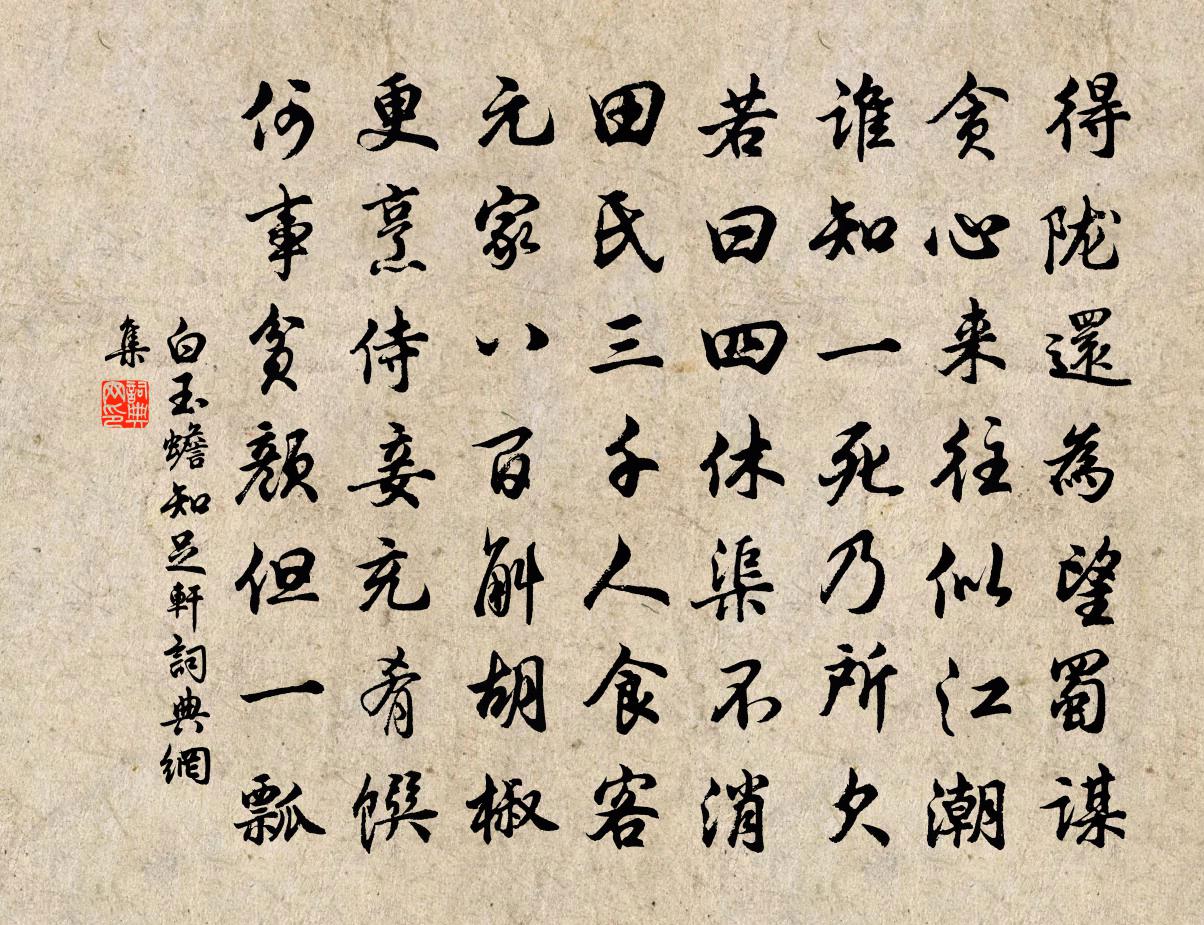 得陇還為望蜀谋
贪心来往似江潮
谁知一死乃所欠
若曰四休渠不消
田氏三千人食客
元家八百斛胡椒
更烹侍妾充肴馔
何事贫颜但一瓢
白玉蟾知足軒詞典網
集
詞典网印